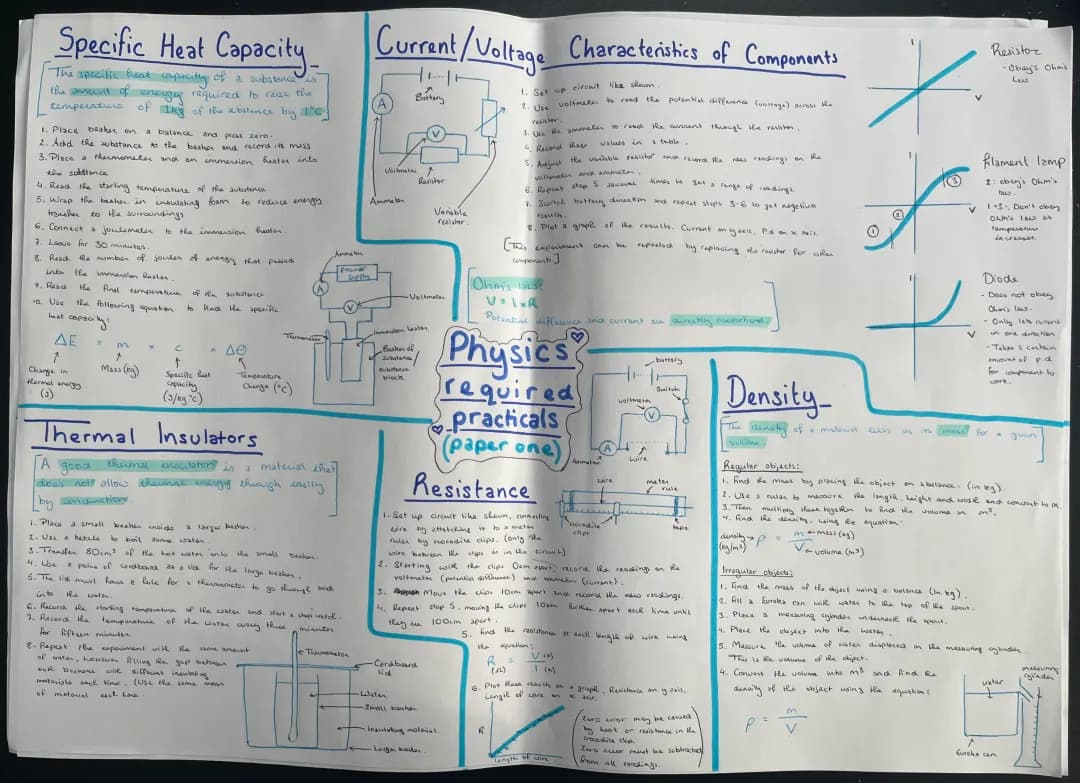 Specific Heat Capacity
The specific heat capacity of a substance is
the amount of energy required to raise the
temperature of 1kg of the substance by 1°C
1. Place beaker on a balance and press zero.
2. Add the substance to the beaker and record its mass
3. Place a thermometer and an immersion heater into
the substance
4. Read the starting temperature of the substance
5. Wrap the beaker in insulating foam to reduce energy
transfer to the surroundings
6. Connect a joulemeter to the immersion heater.
7. Leave for 30 minutes.
8. Read the number of joules of energy that passed
into the immersion heater.
9. Read the final temperature of the substance
10. Use the following equation to find the specific
heat capacity:
ΔE = m × c × Δθ
Change in
thermal energy
(J)
Mass (kg)
Specific heat
capacity
(J/kg°C)
Temperature
Change (°C)
Ammeter
power
supply
A
V
Voltmeter
Thermometer
Immersion heater
Beaker of
substance/
substance
block
Current/Voltage Characteristics of Components
Battery
A
V
Voltmeter
Resistor
Ammeter
Variable
resistor.
1. Set up circuit like shown.
2. Use voltmeter to read the potential difference (voltage) across the
resistor.
3. Use the ammeter to read the current through the resistor.
4. Record these values in a table.
5. Adjust the variable resistor and record the new readings on the
voltmeter and ammeter.
6. Repeat step 5 several times to get a range of readings.
7. Switch battery direction and repeat steps 3-6 to get negative
results.
8. Plot a graph of the results. Current on y axis. P.d on x axis.
[This experiment can be repeated by replacing the resistor for other
components.]
Ohm's law:
V = I × R
Potential difference and current are directly proportional
I
V
Resistor
- Obey's Ohm's
Law
I
V
①
②
③
Filament lamp
2: obey's Ohm's
law.
1+3: Don't obey
Ohm's law as
temperature
increases.
I
V
Diode
- Does not obey
Ohm's law.
- Only lets current
in one direction
- Takes a certain
amount of p.d
for component to
work.
Physics
required
practicals
(paper one)
Thermal Insulators
A good thermal insulator is a material that
does not allow thermal energy through easily
by conduction
1. Place a small beaker inside a larger beaker.
2. Use a kettle to boil some water.
3. Transfer 80cm³ of the hot water into the small beaker.
4. Use a piece of cardboard as a lid for the large beaker.
5. The lid must have a hole for a thermometer to go through and
into the water.
6. Record the starting temperature of the water and start a stop watch.
7. Record the temperature of the water every three minutes
for fifteen minutes.
8. Repeat the experiment with the same amount
of water, however, filling the gap between
both beakers with different insulating
materials each time. (Use the same mass
of material each time.
Thermometer
Cardboard
lid
Water
Small beaker
Insulating material.
Larger beaker.
Resistance
battery
Switch
voltmeter
V
A
Ammeter
Wire
wire
meter
rule
crocodile
clips
tape
1. Set up circuit like shown, connecting
wire by attatching it to a meter
ruler by crocodile clips. (only the
wire between the clips is in the circuit)
2. Starting with the clips 0cm apart, record the readings on the
voltmeter (potential difference) and ammeter (current).
3. Move the clips 10cm apart and record the new readings.
4. Repeat step 3, moving the clips 10cm further apart each time until
they are 100cm apart.
5. Find the resistance at each length of wire using
the equation:
R (Ω) = V (V) / I (A)
6. Plot these results on a graph, Resistance on y axis.
Length of wire on x axis.
R
length of wire
(Zero error may be caused
by heat or resistance in the
crocodile clip.
Zero error must be subtracted
from all readings.)
Density
The density of a material tells us its mass for a given
volume
Regular objects:
1. Find the mass by placing the object on a balance. (in kg).
2. Use a ruler to measure the length, height and width and convert to m.
3. Then multiply these together to find the volume in m³.
4. Find the density, using the equation:
density → ρ = m ← mass (kg)
(kg/m³)
V ← volume (m³)
Irregular objects:
1. Find the mass of the object using a balance (in kg).
2. Fill a Eureka can with water to the top of the spout.
3. Place a measuring cylinder underneath the spout.
4. Place the object into the water.
5. Measure the volume of water displaced in the measuring cylinder
This is the volume of the object.
4. Convert the volume into m³ and find the
density of the object using the equation:
ρ = m / V
water
measuring
cylinder
Eureka can